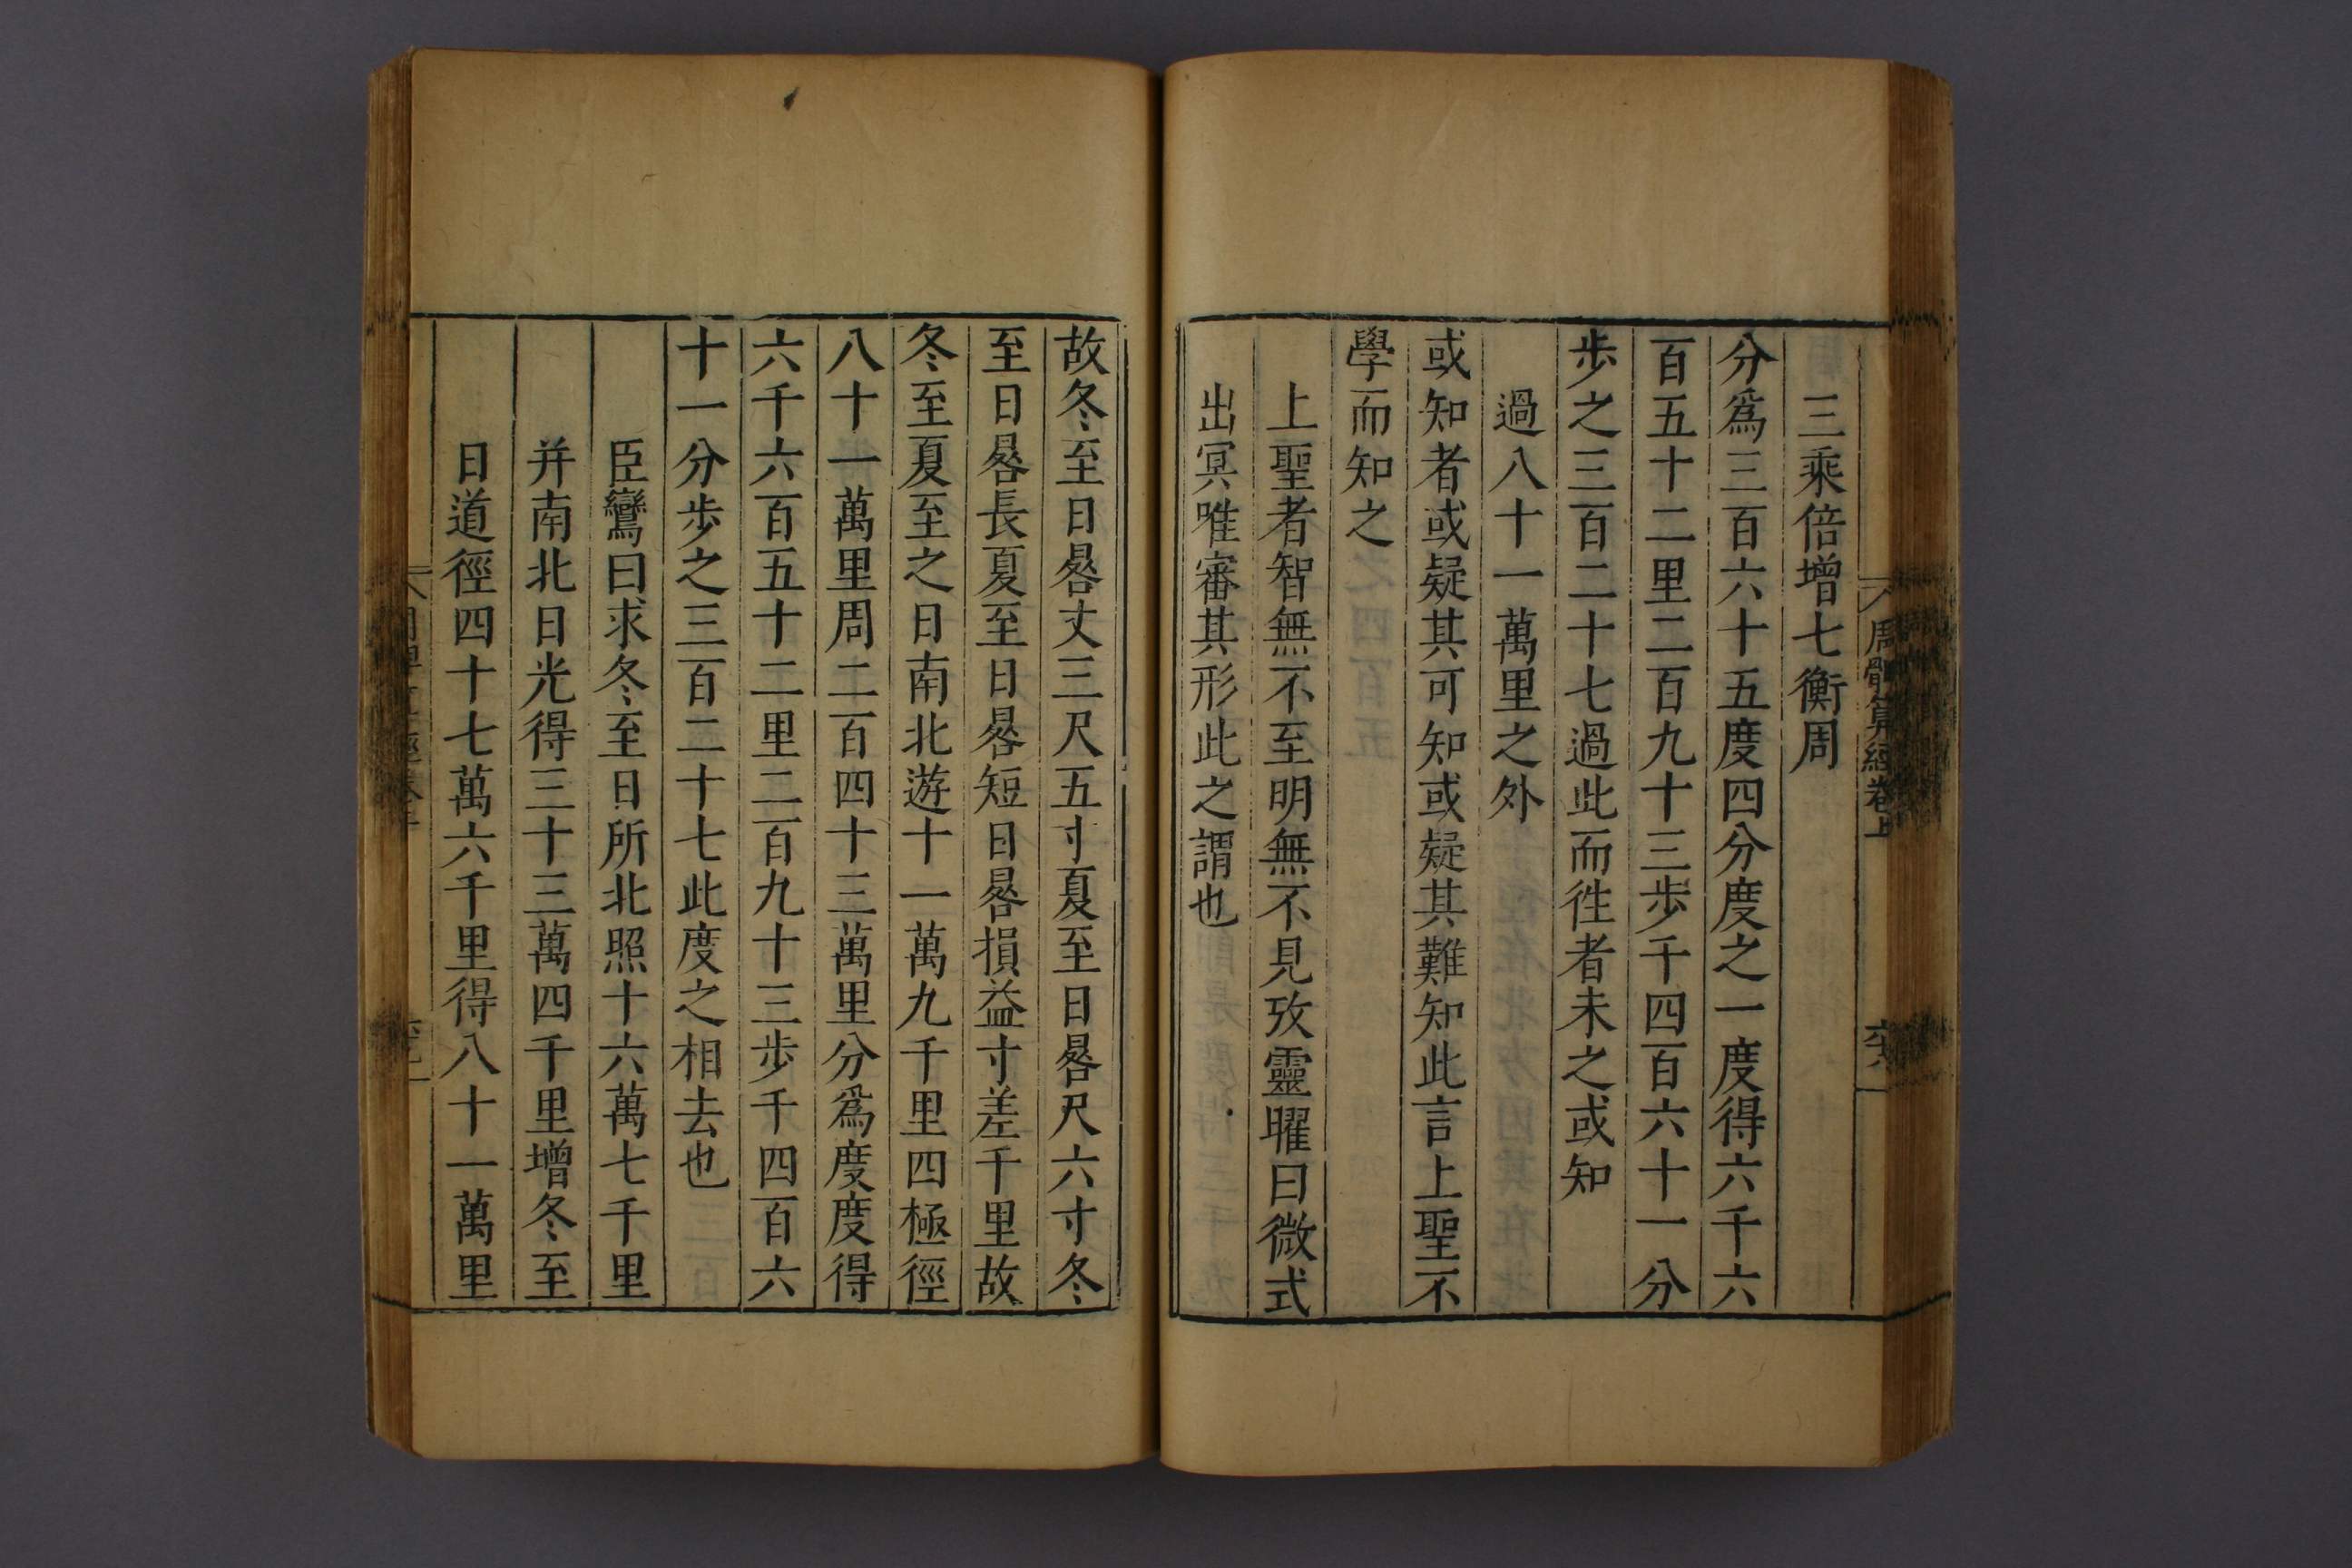 周髀算經卷上
六六
三乘倍增七衡周
分爲三百六十五度四分度之一度得六千六
百五十二里二百九十三步千四百六十一分
步之三百二十七過此而徃者未之或知
過八十一萬里之外
或知者或疑其可知或疑其難知此言上聖不
學而知之
上聖者智無不至明無不見攷靈曜曰微式
出冥唯審其形此之謂也
故冬至日晷丈三尺五寸夏至日晷尺六寸冬
至日晷長夏至日晷短日晷損益寸差千里故
冬至夏至之日南北遊十一萬九千里四極徑
八十一萬里周二百四十三萬里分爲度度得
六千六百五十二里二百九十三步千四百六
十一分步之三百二十七此度之相去也
臣鸞曰求冬至日所北照十六萬七千里
并南北日光得三十三萬四千里增冬至
日道徑四十七萬六千里得八十一萬里